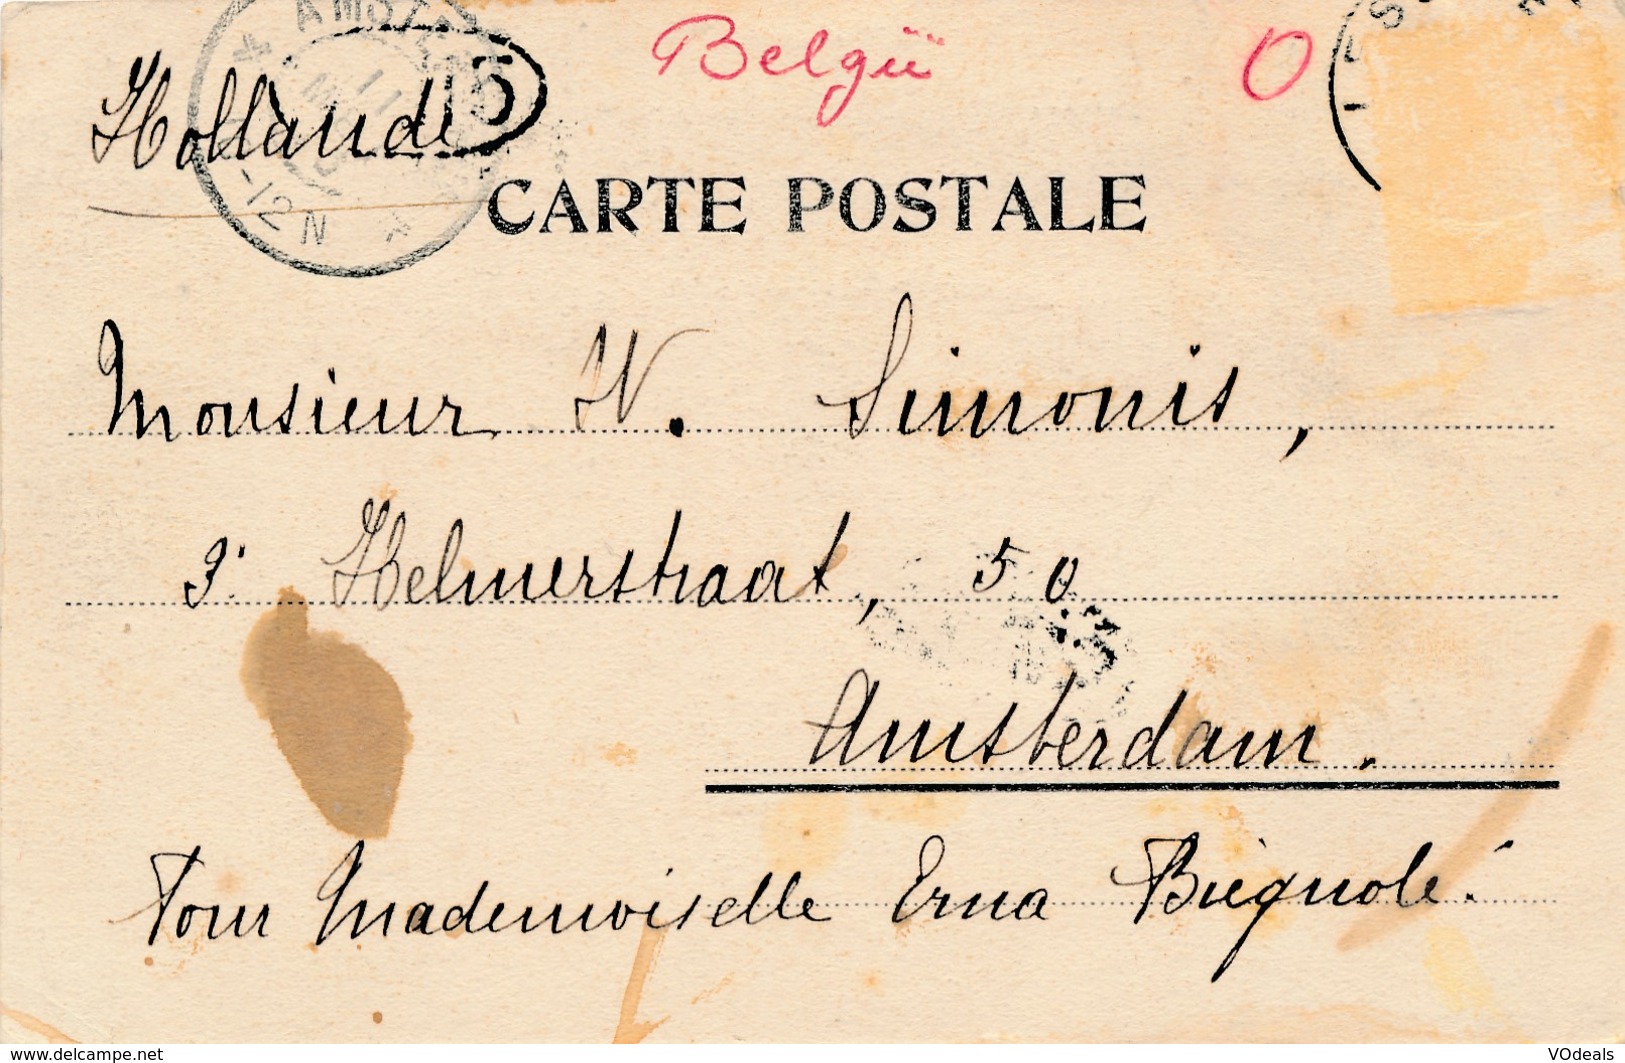 België O
Hollande
15
-12 N
CARTE POSTALE
Monsieur W. Simonis,
3. Helmerstraat, 50
Amsterdam.
Pour Mademoiselle Erna Biegnolé.
www.delcampe.net
VOdeals